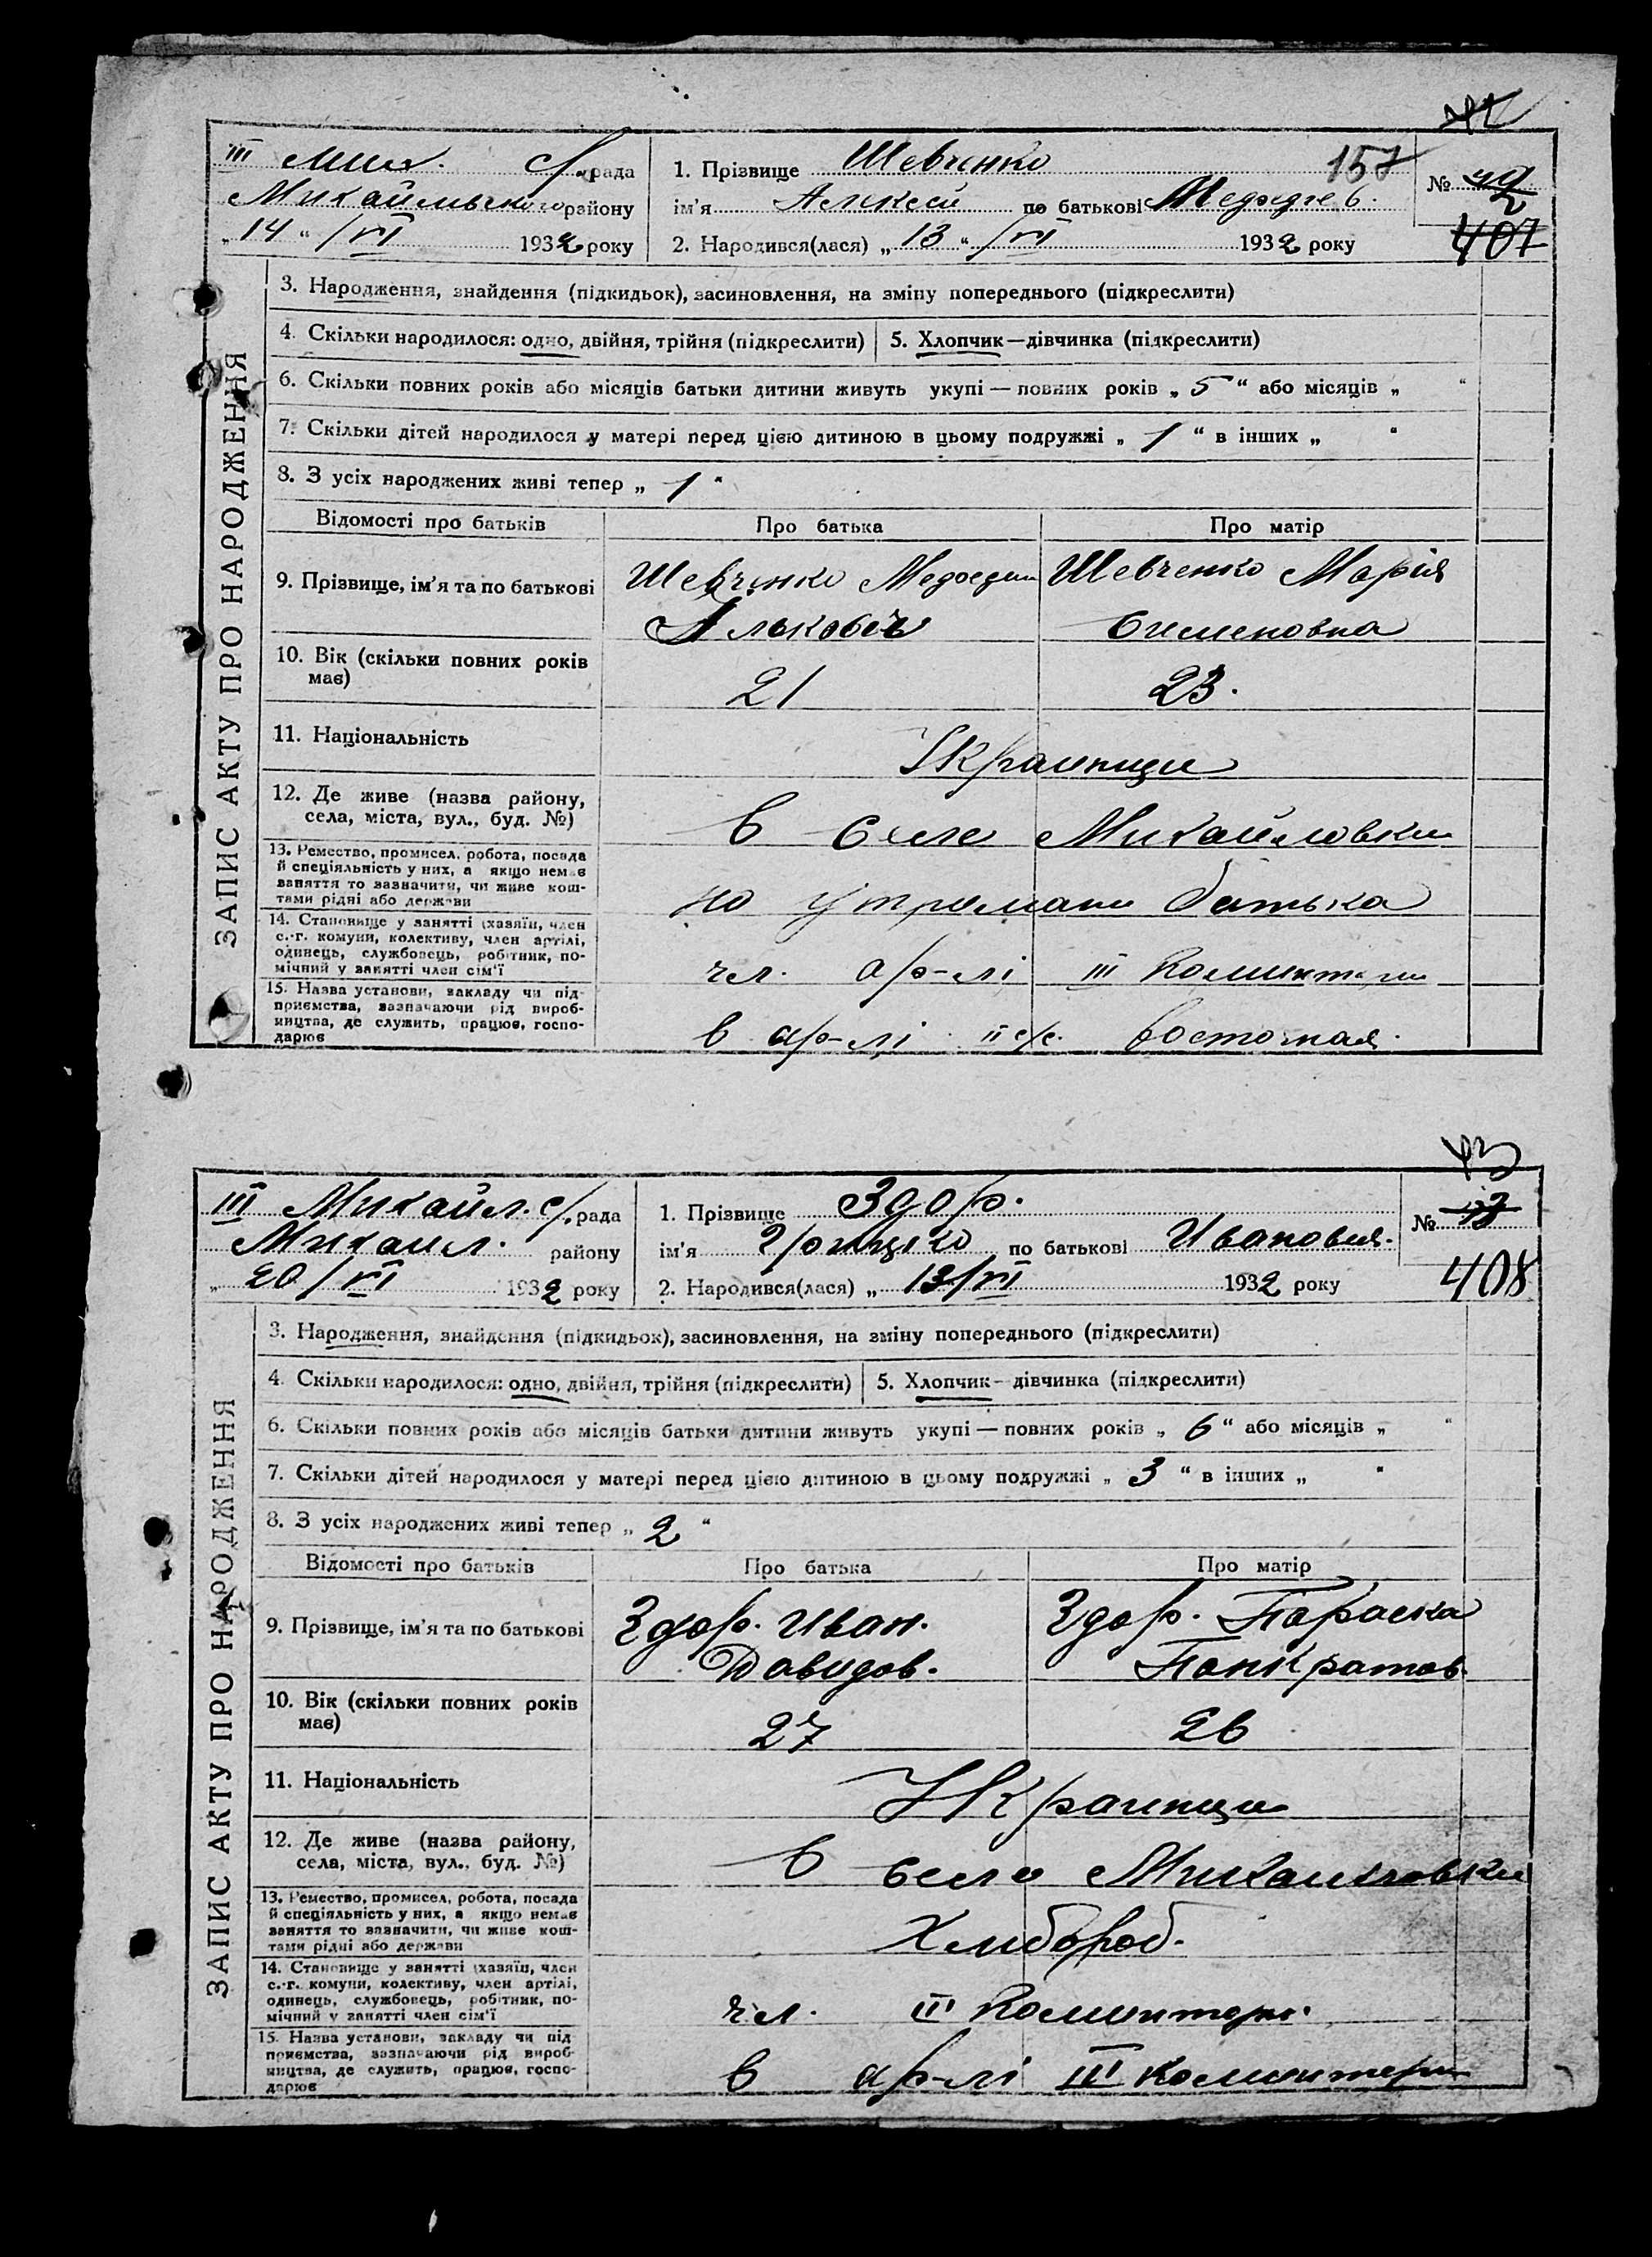 III Мих. с/рада
Михайлівського району
„14“ /VI 1932 року
1. Прізвище Шевченко 157
ім'я Алексей по батькові
2. Народився(лася) „13“ /VI 1932 року
№
407
ЗАПИС АКТУ ПРО НАРОДЖЕННЯ
3. Народження, знайдення (підкидьок), засиновлення, на зміну попереднього (підкреслити)
4. Скільки народилося: одно, двійня, трійня (підкреслити) 5. Хлопчик—дівчинка (підкреслити)
6. Скільки повних років або місяців батьки дитини живуть укупі — повних років „ 5 “ або місяців „ “
7. Скільки дітей народилося у матері перед цією дитиною в цьому подружжі „ 1 “ в інших „ “
8. З усіх народжених живі тепер „ 1 “
Відомості про батьків Про батька Про матір
9. Прізвище, ім'я та по батькові Шевченко Шевченко Мария
Сименовна
10. Вік (скільки повних років має) 21 23.
11. Національність Украинци
12. Де живе (назва району, села, міста, вул., буд. №) в селе Михайловки
13. Ремество, промисел, робота, посада й спеціяльність у них, а якщо немає заняття то зазначити, чи живе коштами рідні або держави на утримани батька
14. Становище у занятті (хазяїн, член с.-г. комуни, колективу, член артілі, одинець, службовець, робітник, помічний у занятті член сім'ї чл. ар-лі III Коминтерн
15. Назва установи, закладу чи підприємства, зазначаючи рід виробництва, де служить, працює, господарює в ар-лі II с/с. восточная.
III Михайл. с/рада
Михаил. району
„ 20/VI 1932 року
1. Прізвище Здор.
ім'я Грицко по батькові Иванович.
2. Народився(лася) „ 13/VI 1932 року
№
408
ЗАПИС АКТУ ПРО НАРОДЖЕННЯ
3. Народження, знайдення (підкидьок), засиновлення, на зміну попереднього (підкреслити)
4. Скільки народилося: одно, двійня, трійня (підкреслити) 5. Хлопчик—дівчинка (підкреслити)
6. Скільки повних років або місяців батьки дитини живуть укупі — повних років „ 6 “ або місяців „ “
7. Скільки дітей народилося у матері перед цією дитиною в цьому подружжі „ 3 “ в інших „ “
8. З усіх народжених живі тепер „ 2 “
Відомості про батьків Про батька Про матір
9. Прізвище, ім'я та по батькові Здор. Иван. Здор. Параска
Давидов. Панкратов.
10. Вік (скільки повних років має) 27 26
11. Національність Украинци
12. Де живе (назва району, села, міста, вул., буд. №) в село Михаиловки
13. Ремество, промисел, робота, посада й спеціяльність у них, а якщо немає заняття то зазначити, чи живе коштами рідні або держави Хлибороб.
14. Становище у занятті (хазяїн, член с.-г. комуни, колективу, член артілі, одинець, службовець, робітник, помічний у занятті член сім'ї чл. III Коминтерн.
15. Назва установи, закладу чи підприємства, зазначаючи рід виробництва, де служить, працює, господарює в ар-лі III Коминтерн